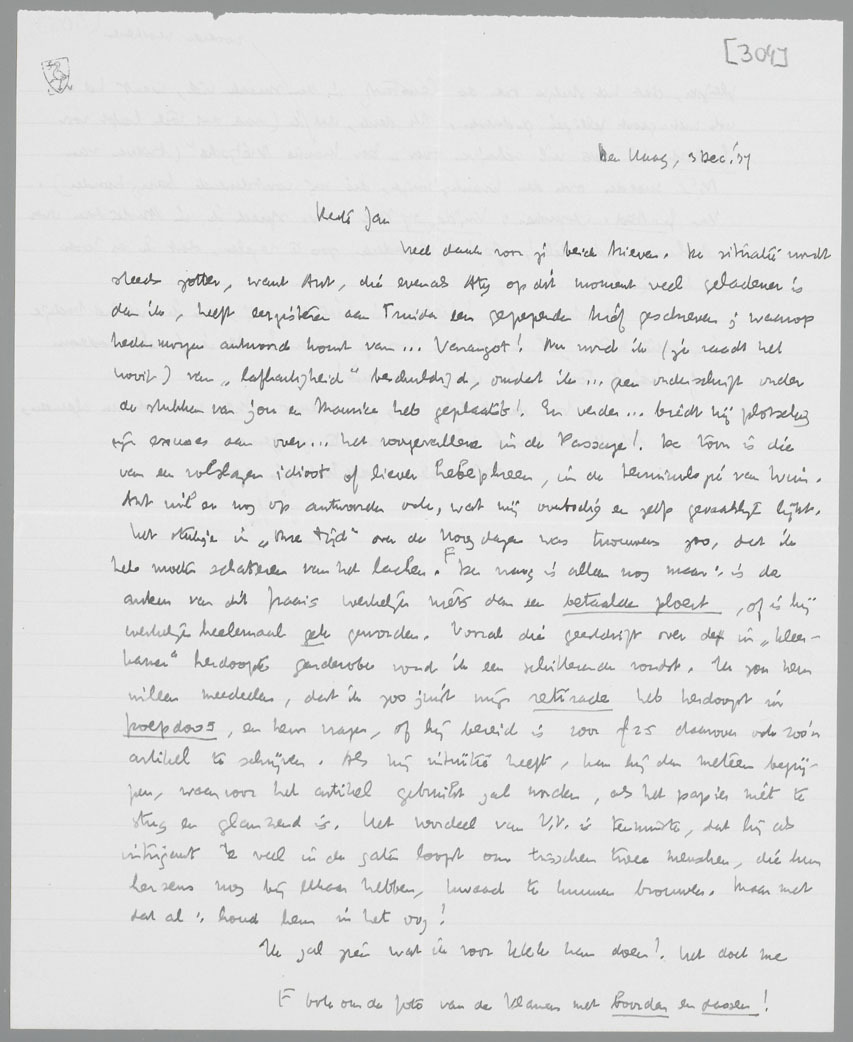 [304]
Den Haag, 3 Dec. '37
Beste Jan
Veel dank voor je beide brieven. De situatie wordt
steeds zotter, want Ant, die evenals Aty op dit moment veel geladener is
dan ik, heeft eergisteren aan Truida een gepeperden brief geschreven; waarop
hedenmorgen antwoord komt van... Vervangot! Nu word ik (je raadt het
nooit) van "lafhartigheid" beschuldigd, omdat ik... geen onderschrift onder
de stukken van jou en Maurice heb geplaatst! En verder... biedt hij plotseling
zijn excuses aan over... het voorgevallene in de Passage! De toon is die
van een volslagen idioot of liever hebephreen, in de terminologie van Wim.
Ant wil er nog op antwoorden ook, wat mij overbodig en zelfs gevaarlijk lijkt.
Het stukje in "Onze Tijd" over de Haagsche dagen was trouwens zoo, dat ik
heb moeten schateren van het lachen. F De vraag is alleen nog maar: is de
auteur van dit fraais werkelijk niets dan een betaalde ploert, of is hij
werkelijk heelemaal gek geworden. Vooral die geestdrift over de in "kleer-
kamer" herdoopte garderobe vond ik een schitterende vondst. Ik zou hem
willen meedeelen, dat ik zoo juist mijn retirade heb herdoopt in
poepdoos, en hem vragen, of hij bereid is voor f 25 daarover ook zoo'n
artikel te schrijven. Als hij intuïtie heeft, kan hij dan meteen begrij-
pen, waarvoor het artikel gebruikt zal worden, als het papier niet te
stug en glanzend is. Het voordeel van V.V. is tenminste, dat hij als
intrigant te veel in de gaten loopt om tusschen twee menschen, die hun
hersens nog bij elkaar hebben, kwaad te kunnen brouwen. Maar met
dat al: houd hem in het oog!
Ik zal zien wat ik voor kan doen! Het doet me
F ook om de foto van de Vlamens met boorden en dassen!